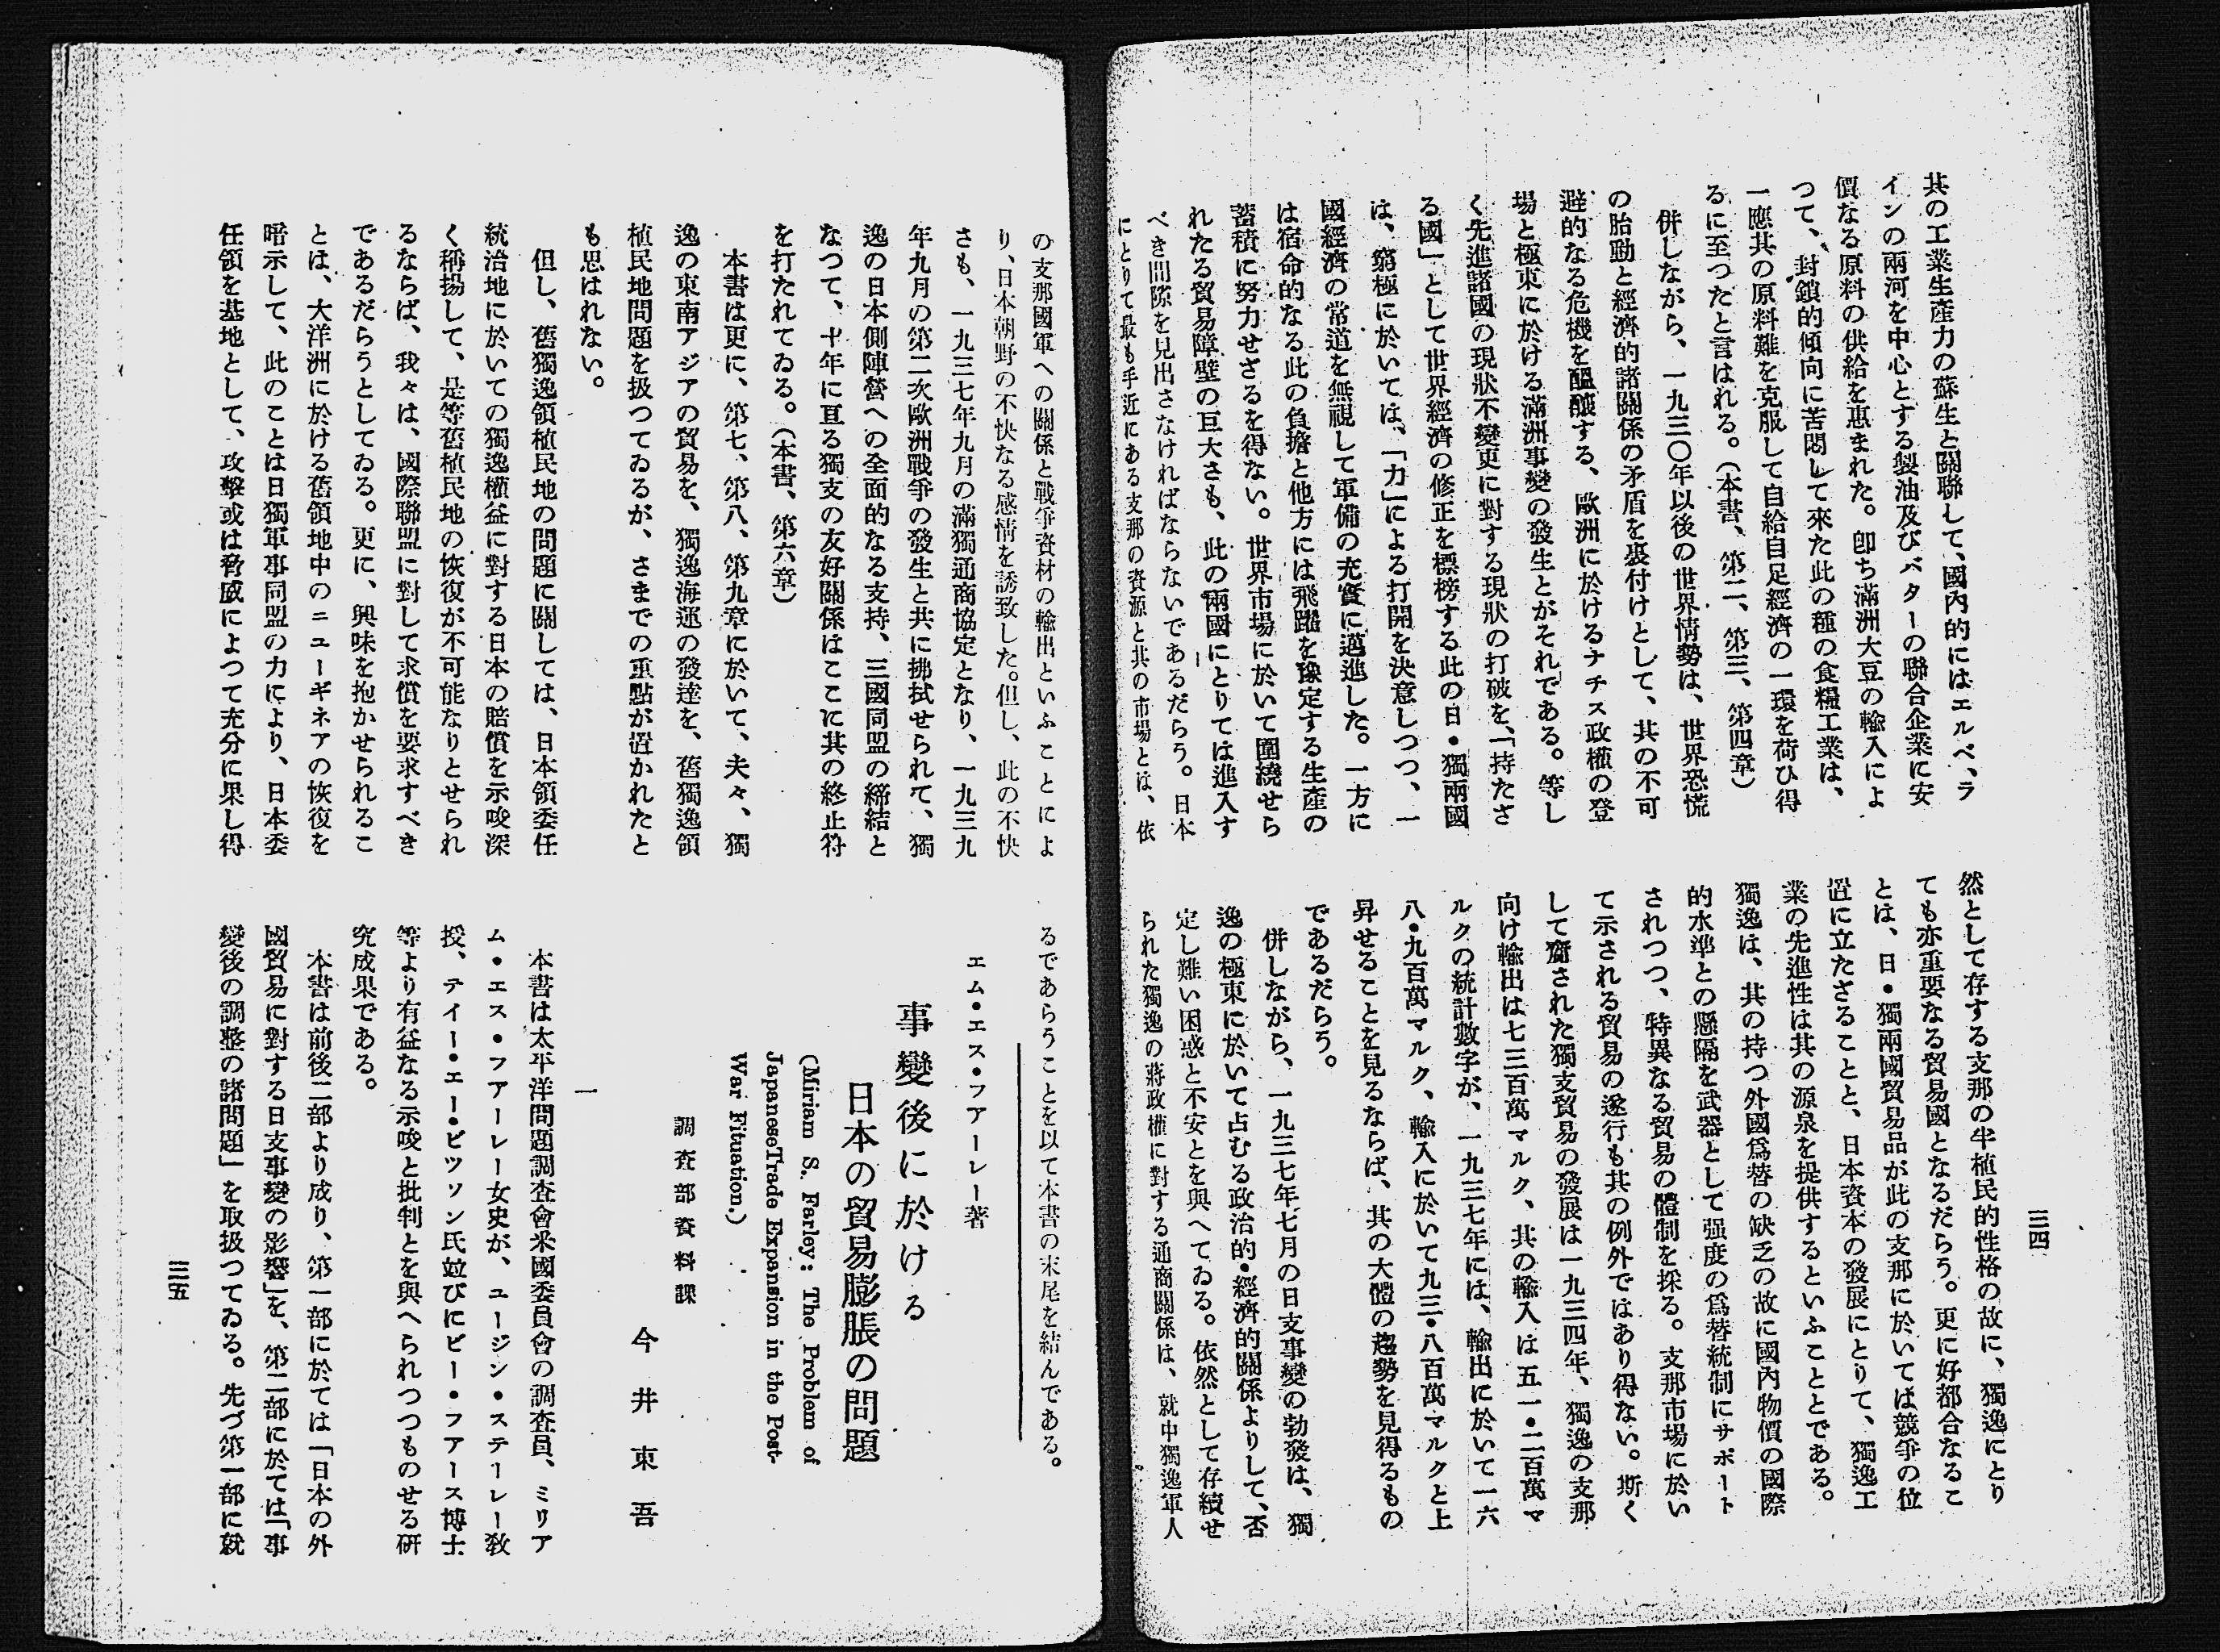 其の工業生産力の蘇生と關聯して、國內的にはエルベ、ラ
インの兩河を中心とする製油及びバターの聯合企業に安
價なる原料の供給を惠まれた。卽ち滿洲大豆の輸入によ
つて、封鎖的傾向に苦悶して來た此の種の食糧工業は、
一應其の原料難を克服して自給自足經濟の一環を荷ひ得
るに至つたと言はれる。（本書、第二、第三、第四章）
併しながら、一九三〇年以後の世界情勢は、世界恐慌
の胎動と經濟的諸關係の矛盾を裏付けとして、其の不可
避的なる危機を醞釀する、歐洲に於けるナチス政權の登
場と極東に於ける滿洲事變の發生とがそれである。等し
く先進諸國の現狀不變更に對する現狀の打破を、「持たざ
る國」として世界經濟の修正を標榜する此の日・獨兩國
は、窮極に於いては、「力」による打開を決意しつつ、一
國經濟の常道を無視して軍備の充實に邁進した。一方に
は宿命的なる此の負擔と他方には飛躍を豫定する生産の
蓄積に努力せざるを得ない。世界市場に於いて圍繞せら
れたる貿易障壁の巨大さも、此の兩國にとりては進入す
べき間隙を見出さなければならないであるだらう。日本
にとりて最も手近にある支那の資源と其の市場とは、依
然として存する支那の半植民的性格の故に、獨逸にとり
ても亦重要なる貿易國となるだらう。更に好都合なるこ
とは、日・獨兩國貿易品が此の支那に於いては競爭の位
置に立たざることと、日本資本の發展にとりて、獨逸工
業の先進性は其の源泉を提供するといふこととである。
獨逸は、其の持つ外國爲替の缺乏の故に國內物價の國際
的水準との懸隔を武器として强度の爲替統制にサポート
されつつ、特異なる貿易の體制を採る。支那市場に於い
て示される貿易の遂行も其の例外ではあり得ない。斯く
して齎された獨支貿易の發展は一九三四年、獨逸の支那
向け輸出は七三百萬マルク、其の輸入は五一・二百萬マ
ルクの統計數字が、一九三七年には、輸出に於いて一六
八・九百萬マルク、輸入に於いて九三・八百萬マルクと上
昇せることを見るならば、其の大體の趨勢を見得るもの
であるだらう。
併しながら、一九三七年七月の日支事變の勃發は、獨
逸の極東に於いて占むる政治的・經濟的關係よりして、否
定し難い困惑と不安とを與へてゐる。依然として存續せ
られた獨逸の蔣政權に對する通商關係は、就中獨逸軍人
三四
の支那國軍への關係と戰爭資材の輸出といふことによ
り、日本朝野の不快なる感情を誘致した。但し、此の不快
さも、一九三七年九月の滿獨通商協定となり、一九三九
年九月の第二次歐洲戰爭の發生と共に拂拭せられて、獨
逸の日本側陣營への全面的なる支持、三國同盟の締結と
なつて、十年に亘る獨支の友好關係はここに其の終止符
を打たれてゐる。（本書、第六章）
本書は更に、第七、第八、第九章に於いて、夫々、獨
逸の東南アジアの貿易を、獨逸海運の發達を、舊獨逸領
植民地問題を扱つてゐるが、さまでの重點が置かれたと
も思はれない。
但し、舊獨逸領植民地の問題に關しては、日本領委任
統治地に於いての獨逸權益に對する日本の賠償を示唆深
く稱揚して、是等舊植民地の恢復が不可能なりとせられ
るならば、我々は、國際聯盟に對して求償を要求すべき
であるだらうとしてゐる。更に、興味を抱かせられるこ
とは、大洋洲に於ける舊領地中のニューギネアの恢復を
暗示して、此のことは日獨軍事同盟の力により、日本委
任領を基地として、攻擊或は脅威によつて充分に果し得
るであらうことを以て本書の末尾を結んである。
エム・エス・フアーレー著
事變後に於ける
日本の貿易膨脹の問題
(Miriam S. Farley: The Problem of
JapaneseTrade Expansion in the Post-
War Fituation.)
調査部資料課
今井東吾
一
本書は太平洋問題調査會米國委員會の調査員、ミリア
ム・エス・フアーレー女史が、ユージン・ステーレー敎
授、テイー・エー・ビツソン氏竝びにビー・フアース博士
等より有益なる示唆と批判とを與へられつつものせる硏
究成果である。
本書は前後二部より成り、第一部に於ては「日本の外
國貿易に對する日支事變の影響」を、第二部に於ては「事
變後の調整の諸問題」を取扱つてゐる。先づ第一部に就
三五